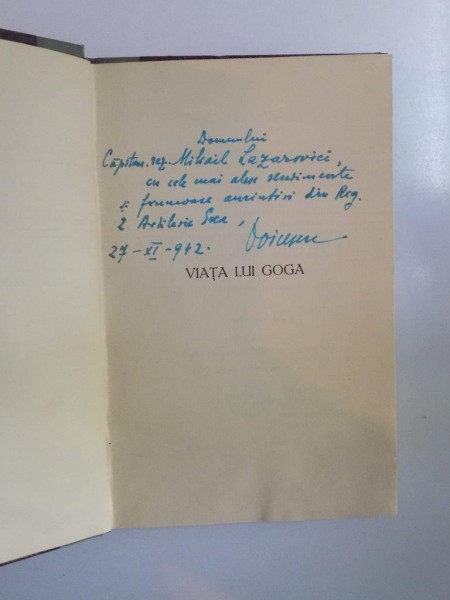 Domnului
Căpitan rez. Mihail Lazarovici,
cu cele mai alese sentimente
și frumoase amintiri din Reg.
2 Artilerie
27-XI-942.
VIAȚA LUI GOGA